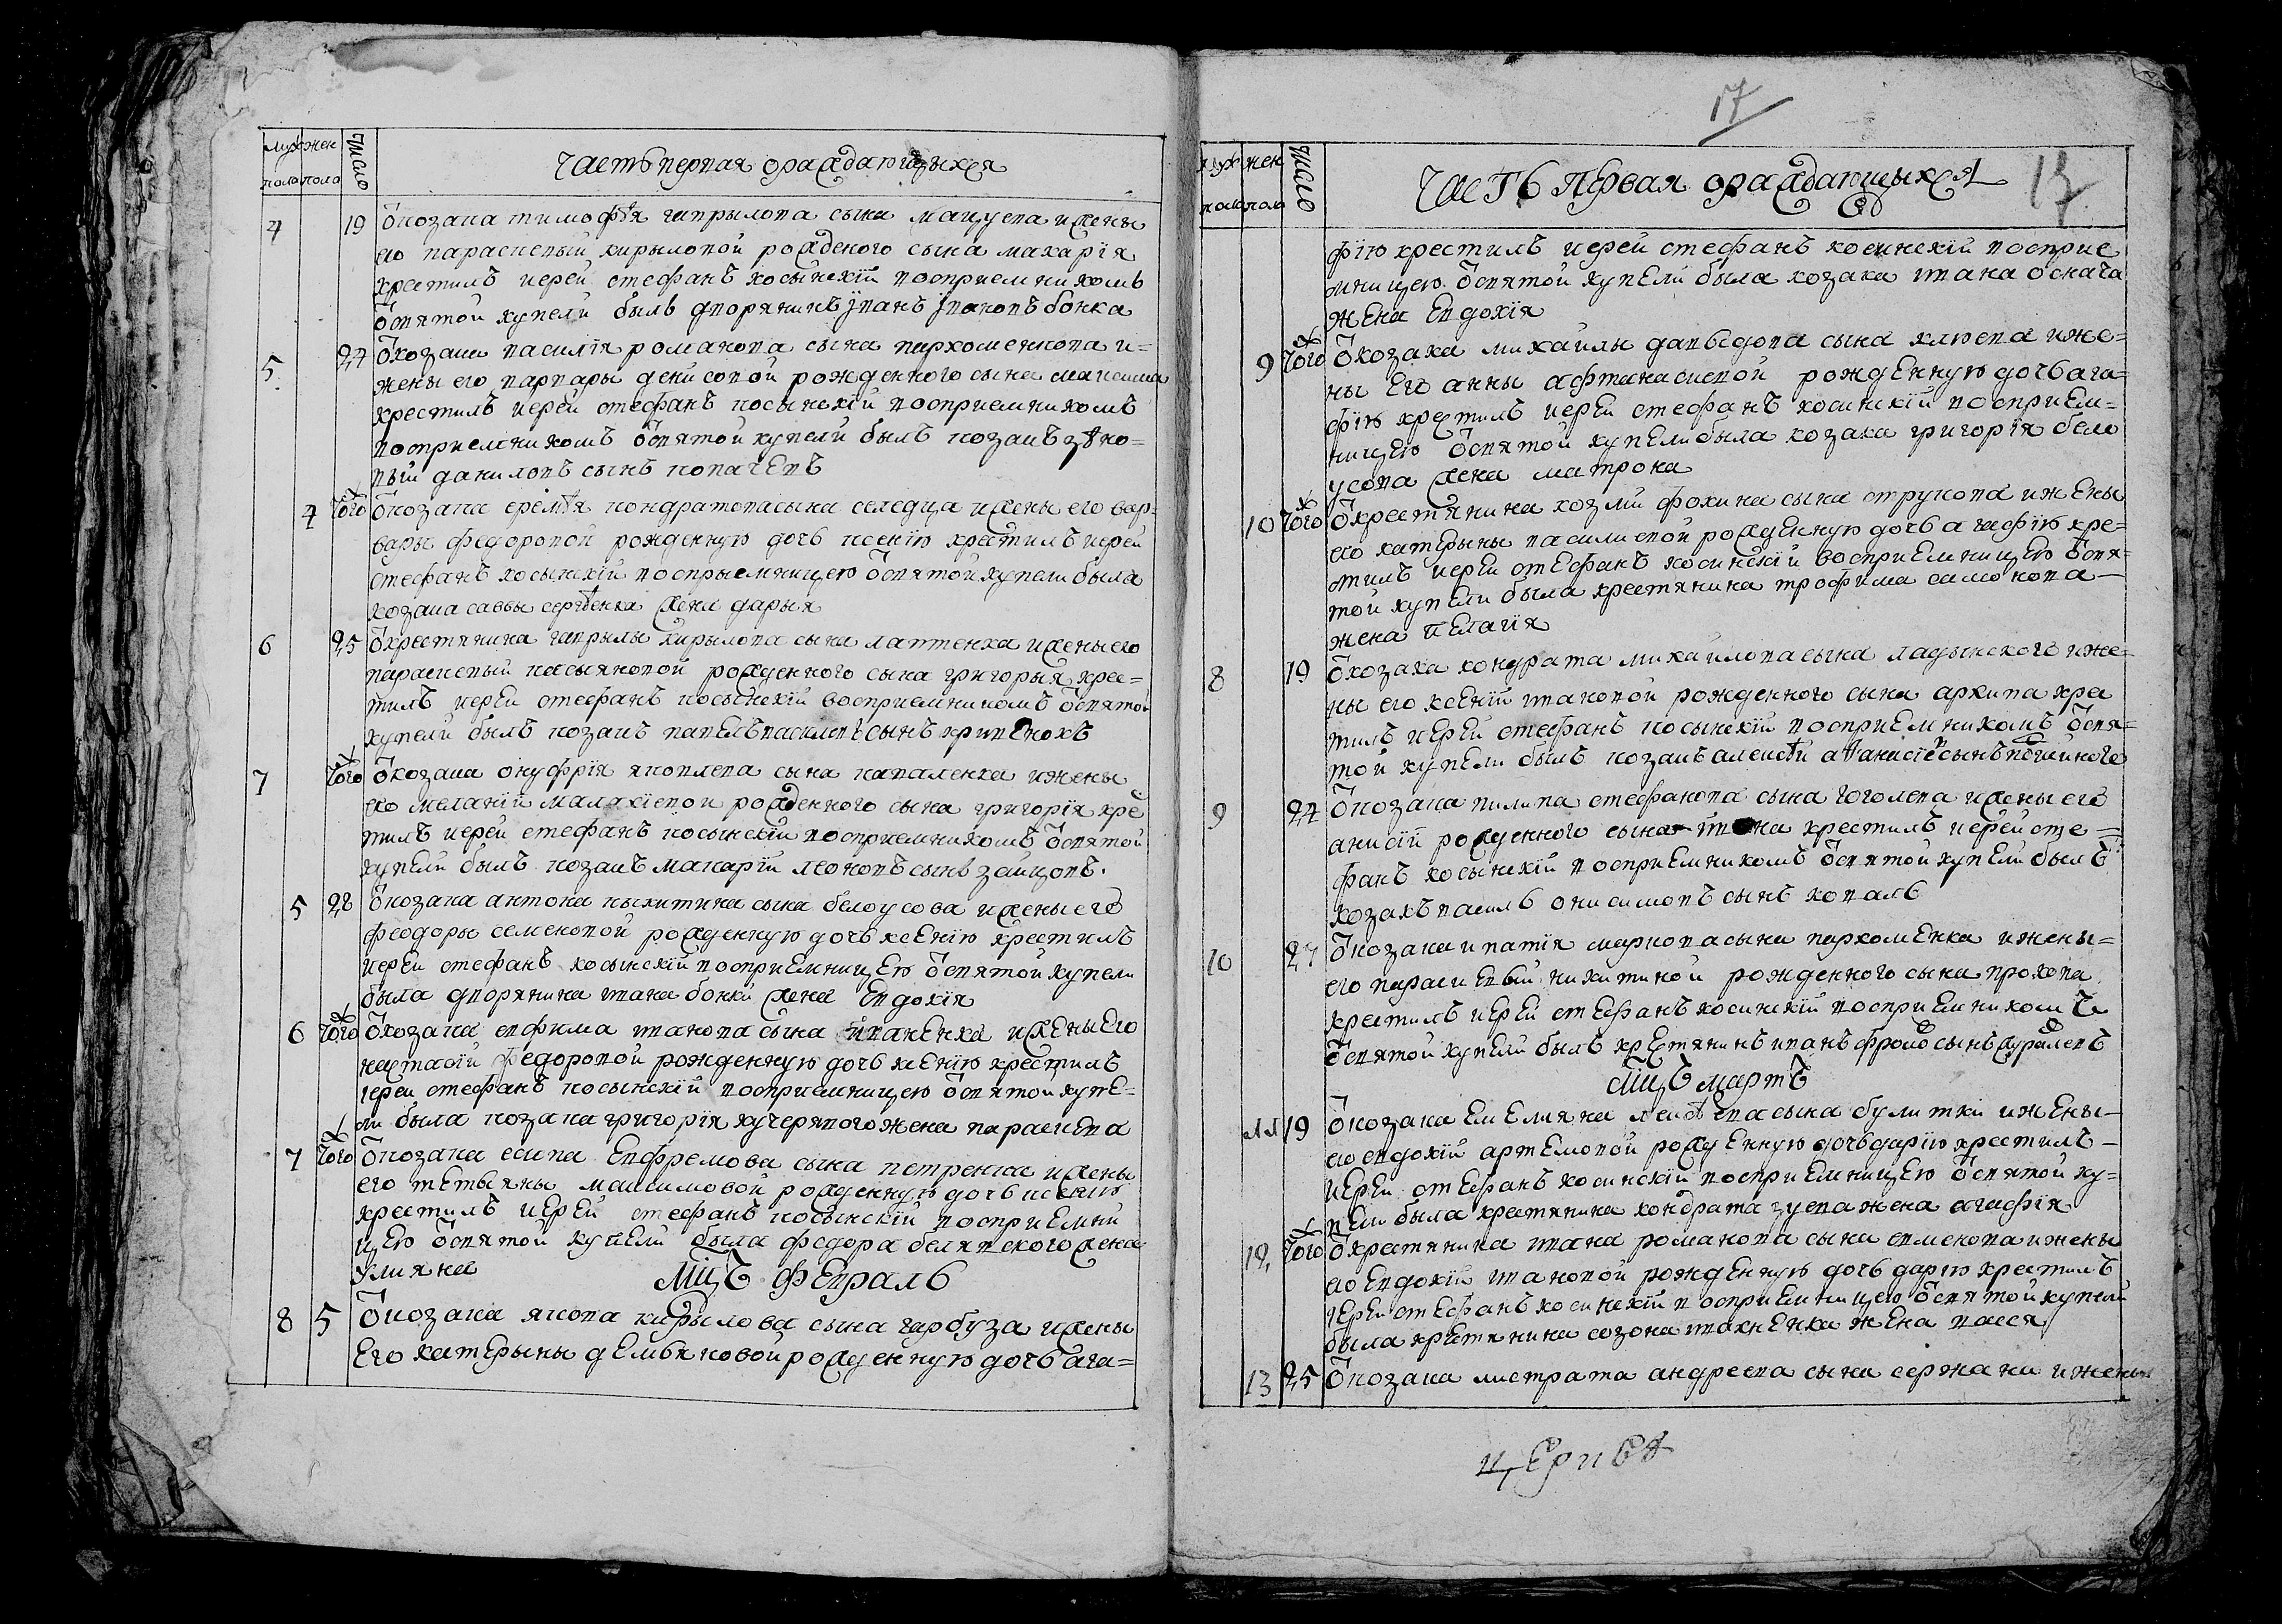 муж жен число
пола пола
Часть первая о раждающихся
4 19 У козака тимофѣя гаврылова сына мацуева и жены
его параскевый кирыловой рожденого сына макарія
крестилъ иерей стефанъ косынскій восприемникомъ
у святой купели былъ дворянинъ іванъ івановъ бонка
5 24 У козака василія романова сына пархоменкова и=
жены его варвары денисовой рожденного сына максима
крестилъ иерей стефанъ косынскій восприемникомъ
восприемникомъ у святой купели былъ козакъ зѣно=
вый даниловъ сынъ копачевъ
4 того У козака еремѣя кондратова сына селедца и жены его вар=
вары федоровой рожденную дочь ксенію крестилъ иерей
стефанъ косынскій воспрыемницею у святой купели была
козака саввы сергѣенка жена дарья
6 25 У крестянина гаврылы кирылова сына лаптенка и жены его
параскевый касьяновой рожденного сына григорыя крес=
тилъ иерей стефанъ косынскій восприемникомъ у святой
купели былъ козакъ павелъ василевъ сынъ кривенокъ
7 того У козака онуфрія яковлева сына капаленка и жены
его меланій малахіевой рожденного сына григорія крес
тилъ иерей стефанъ косынскій восприемникомъ у святой
купели былъ козакъ макарій леоновъ сынъ зайцовъ.
5 28 У козака антона никитина сына белоусова и жены его
феодоры семеновой рожденную дочь ксенію крестилъ
иерей стефанъ косынскій восприемницею у святой купели
была дворянина ивана бонки жена евдокія
6 того У козака евфима иванова сына иваненка и жены его
настасій федоровой рожденную дочь ксенію крестилъ
иерей стефанъ косынскій восприемницею у святой купе=
ли была козака григорія кучерявого жена параскева
7 того У козака есипа евфремова сына петренка и жены
его тетьяны максимовой рожденную дочь ксенію
крестилъ иерей стефанъ косынскій восприемни
цею у святой купели была федора белявского жена
улияна
Мцъ февраль
8 5 У козака якова кирылова сына гарбуза и жены
его катерыны демьяновой рожденную дочь ага=
17
муж жен число
пола пола
Часть первая о раждающыхся 17
фію крестилъ иерей стефанъ косинскій восприе
мницею у святой купели была козака ивана оснача
жена евдокія
9 того У козака михайлы давыдова сына клюева и же=
ны его анны афтанасиевой рожденную дочь ага=
фію крестилъ иерей стефанъ косинскій восприем=
ницею у святой купели была козака григорія бело
усова жена матрона
10 того У крестянина козми фокина сына струкова и жены
его катерыны василиевой рожденную дочь агафію кре=
стилъ иерей стефанъ косинскій восприемницею у свя=
той купели была крестянина трофима
жена пелагія
8 19 У козака кондрата михайлова сына ладынского и же=
ны его ксеній ивановой рожденного сына архипа кре
тилъ иерей стефанъ косынскій восприемникомъ у свя=
той купели былъ козакъ алексѣй сынъ
9 24 У козака пилипа стефанова сына гоголева и жены его
анисій рожденного сына ивана крестилъ иерей сте=
фанъ косынскій восприемникомъ у святой купели былъ
козакъ василь онисимовъ сынъ коваль
10 24 У козака ипатія маркова сына пархоменка и жены=
его параскевый никитиной рожденного сына прокопа
крестилъ иерей стефанъ косинскій восприемникомъ
у святой купели былъ крестянинъ иванъ фроловъ сынъ журавлевъ
Мцъ мартъ
11 19 У козака емелияна сына булитки и жены=
его евдокій артемовой рожденную дочь дарію крестилъ=
иерей стефанъ косинскій восприемницею у святой ку=
пели была крестянина кондрата зуева жена агафія
12 того У крестянина ивана романова сына семенова и жены
его евдокій ивановой рожденную дочь дарію крестилъ
иерей стефанъ косинскій восприемницею у святой купели
была крестянина созона ивахненка жена васся
13 25 У козака листрата андреева сына сержани и жены
церкве